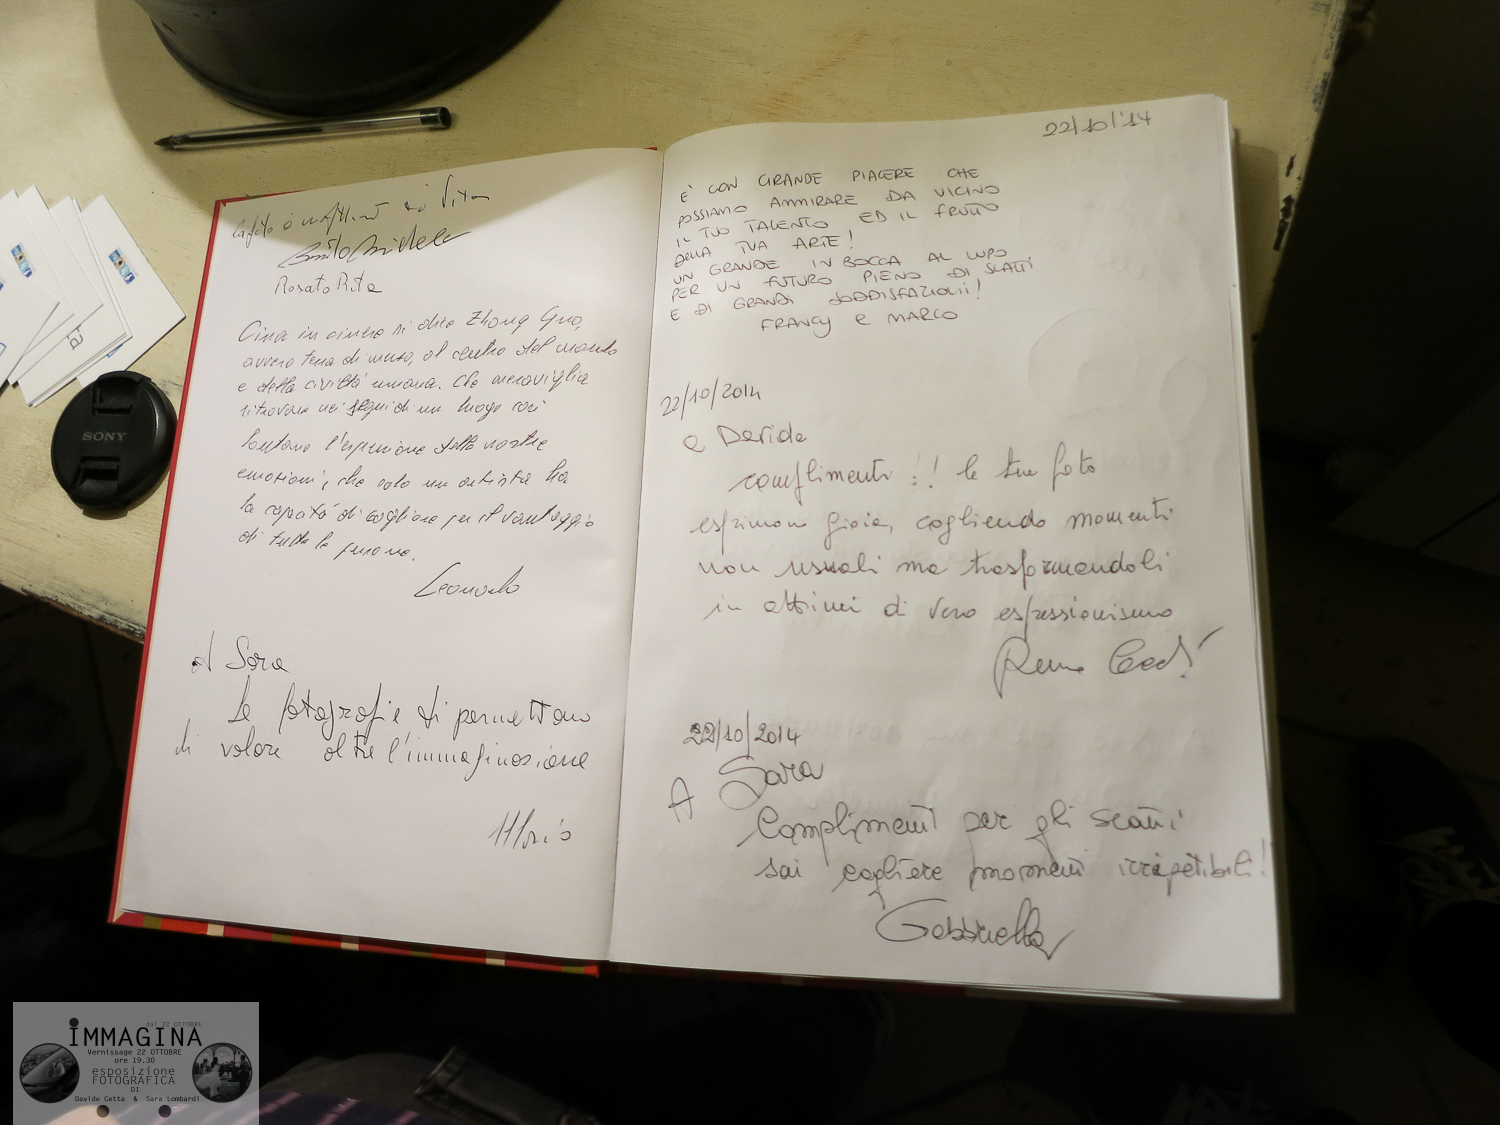 Rosato Rita
Cina in cinese si dice Zhong Guo,
ovvero terra di mezzo, al centro del mondo
e della civiltà umana. Che meraviglia
ritrovare nei segni di un luogo così
lontano l'espressione delle nostre
emozioni, che solo un artista ha
la capacità di cogliere per il vantaggio
di tutte le persone.
Leonardo
A Sara
Le fotografie ti permettono
di volare oltre l'immaginazione
22/10/'14
È CON GRANDE PIACERE CHE
POSSIAMO AMMIRARE DA VICINO
IL TUO TALENTO ED IL FRUTTO
DELLA TUA ARTE!
UN GRANDE IN BOCCA AL LUPO
PER UN FUTURO PIENO DI SCATTI
E DI GRANDI SODDISFAZIONI!
FRANCY e MARCO
22/10/2014
a Davide
complimenti!! le tue foto
esprimono gioia, cogliendo momenti
non usuali ma trasformandoli
in attimi di vero espressionismo
22/10/2014
A Sara
Complimenti per gli scatti
sai cogliere momenti irripetibili!
Gabriella
SONY
dal 22 OTTOBRE
iMMAGINA
Vernissage 22 OTTOBRE
ore 19.30
esposizione
FOTOGRAFICA
DI
Davide Catta & Sara Lombardi